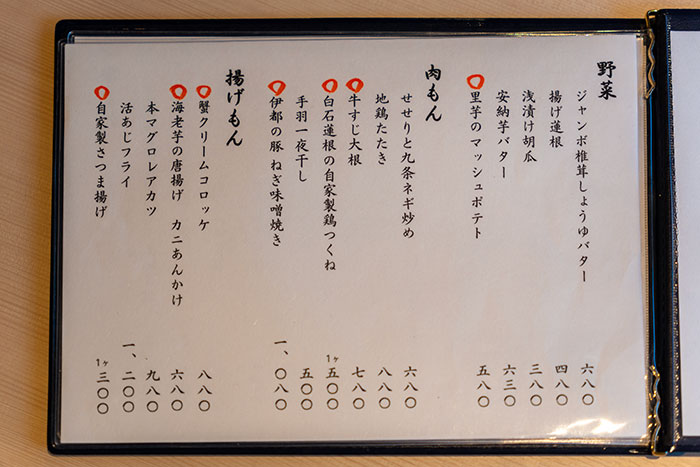 野菜
ジャンボ椎茸しょうゆバター 六八〇
揚げ蓮根 四八〇
浅漬け胡瓜 三八〇
安納芋バター 六三〇
里芋のマッシュポテト 五八〇
肉もん
せせりと九条ネギ炒め 六八〇
地鶏たたき 八八〇
牛すじ大根 七八〇
白石蓮根の自家製鶏つくね 1ヶ五〇〇
手羽一夜干し 五〇〇
伊都の豚 ねぎ味噌焼き 一、〇八〇
揚げもん
蟹クリームコロッケ 八八〇
海老芋の唐揚げ カニあんかけ 六八〇
本マグロレアカツ 九八〇
活あじフライ 一、二〇〇
自家製さつま揚げ 1ヶ三〇〇